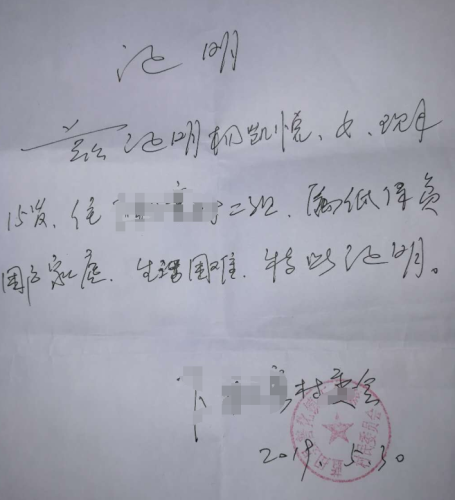 证明
兹证明杨凯悦、女、现年
15岁,住 二组、属低保贫
困户家庭、生活困难、特此证明。
村委会
2019.5.30
村民委员会